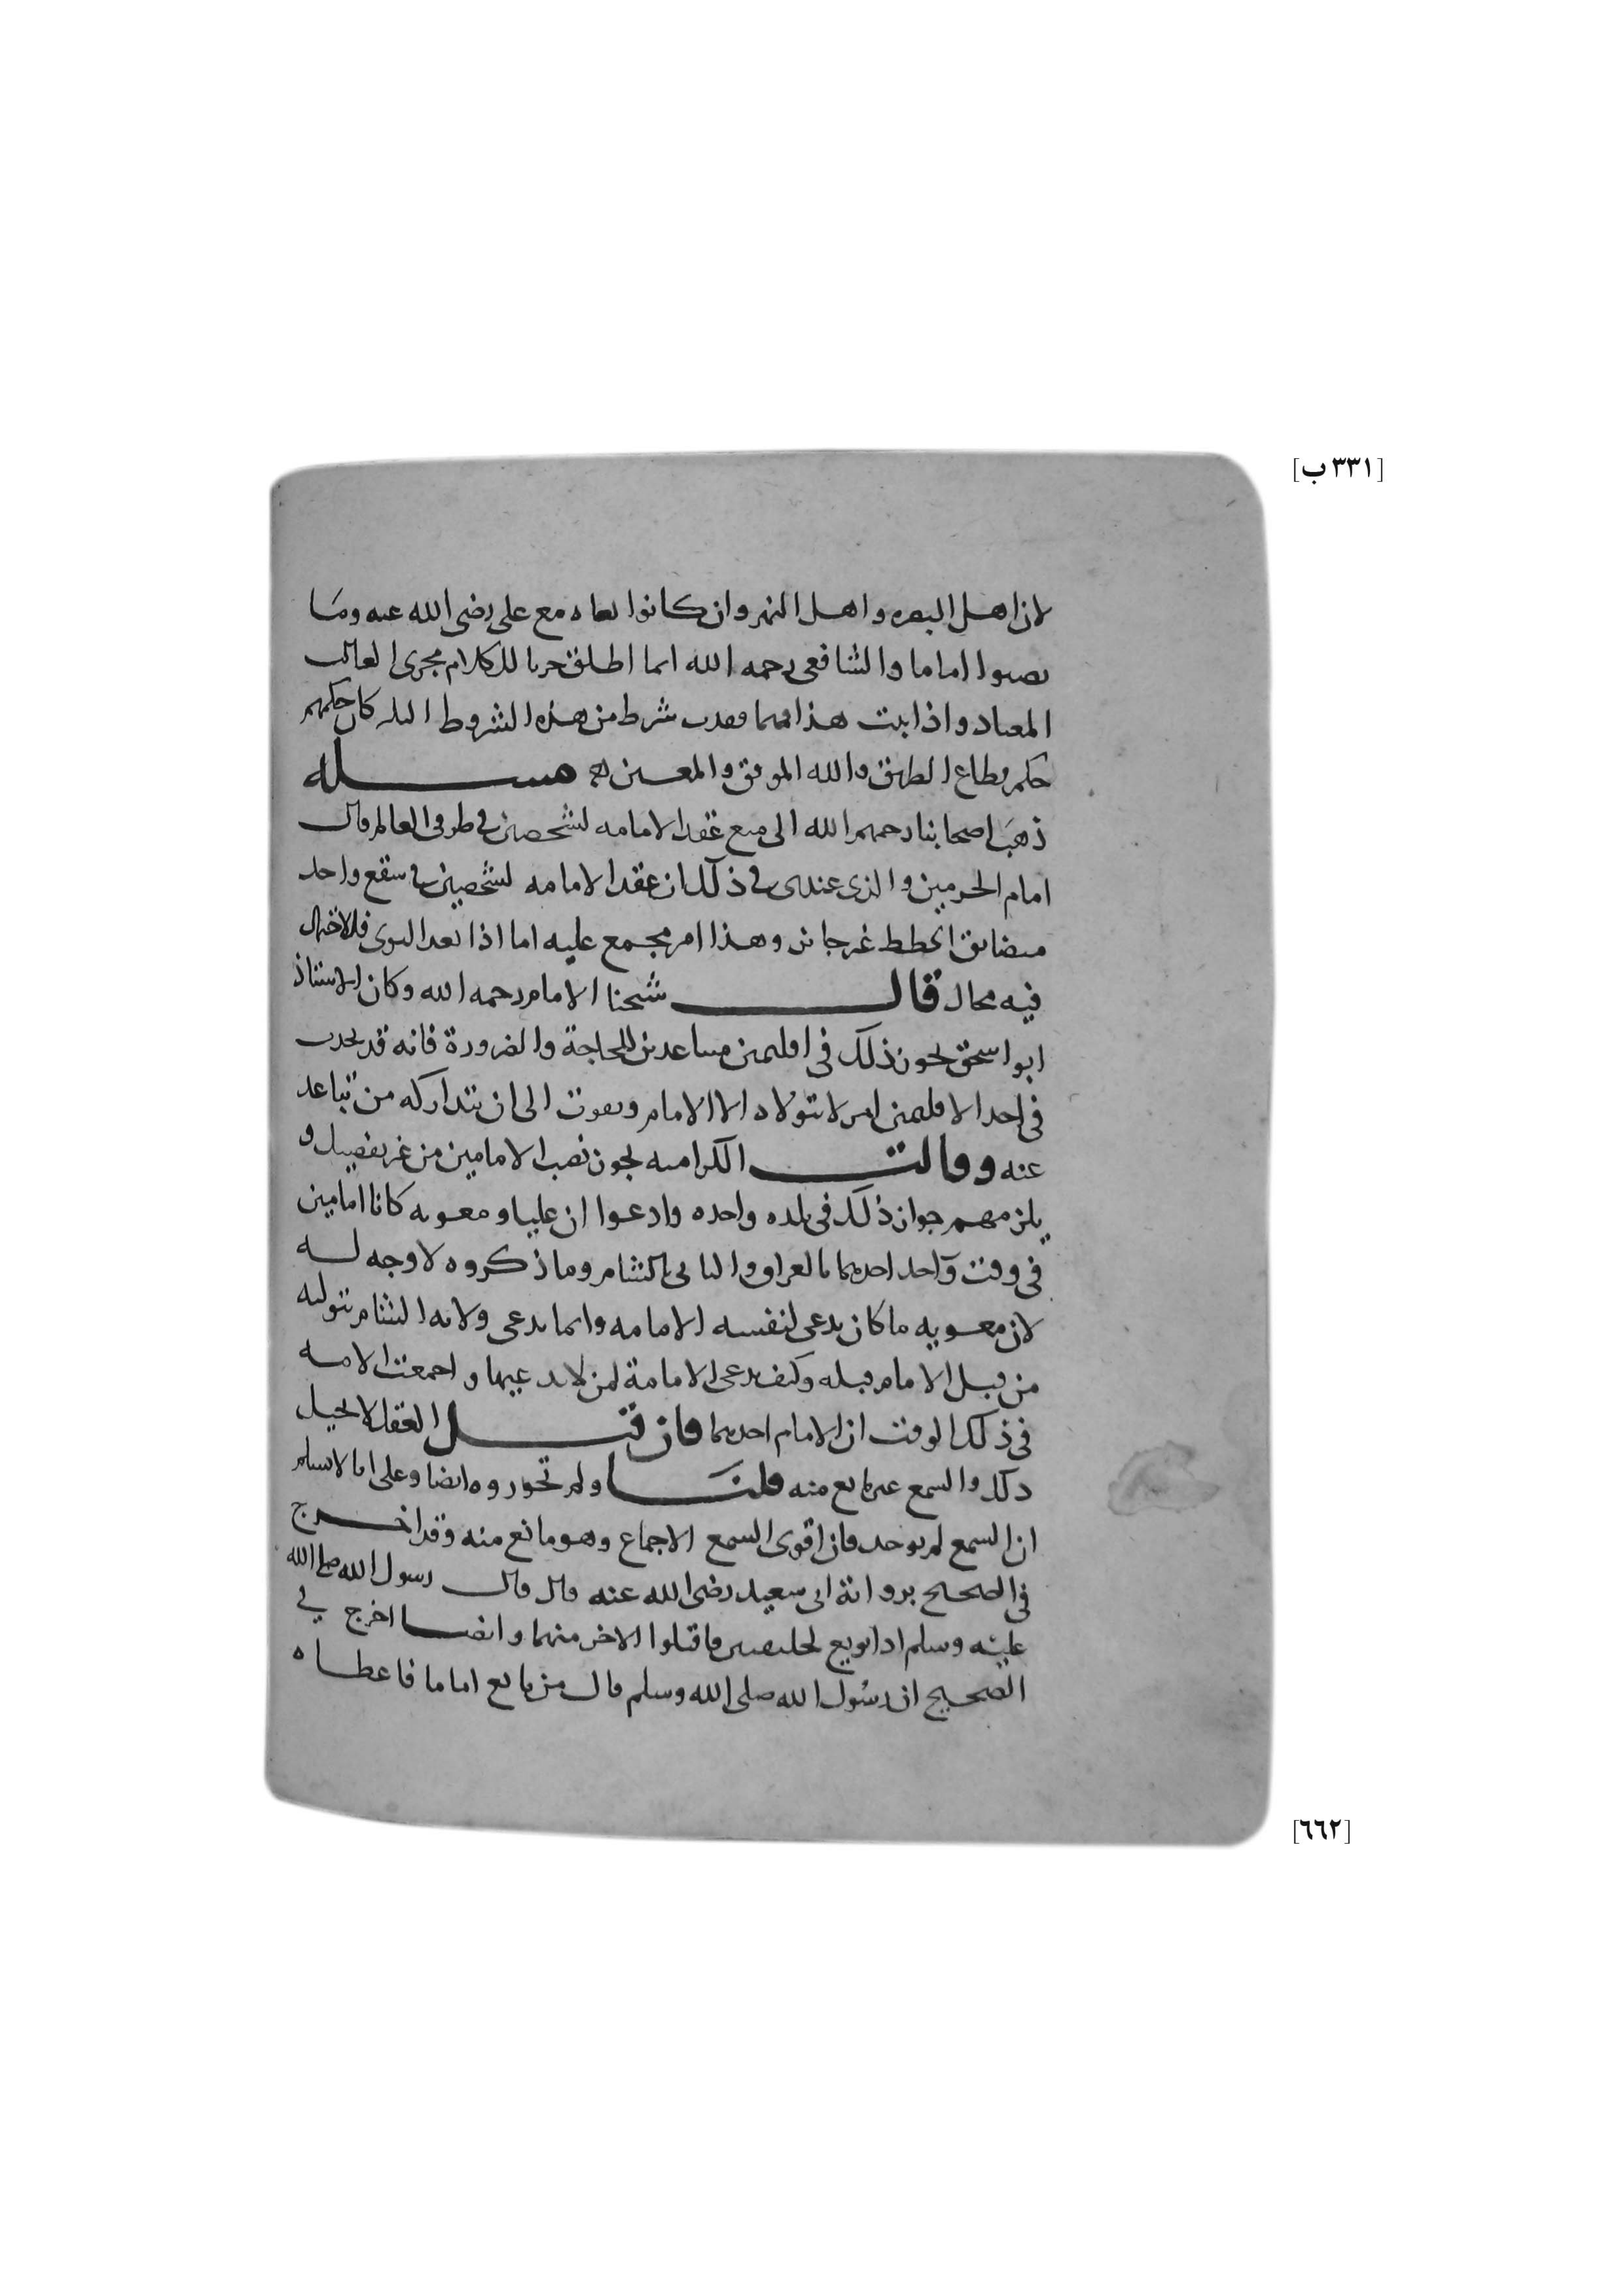 [٣٣١ ب]
لان اهل البصره واهل النهروان كانوا بغاه مع على رضى الله عنه وما
نصبوا اماما والشافعى رحمه الله انما اطلق جريا للكلام مجرى الغالب
المعتاد واذا ثبت هذا فمهما فقدت شرط من هذه الشروط الثلثه كان حكمهم
حكم قطاع الطريق والله الموفق والمعين مسله
ذهب اصحابنا رحمهم الله الى منع عقد الامامه لشخصين فى طرفى العالم قال
امام الحرمين والذى عندى فى ذلك ان عقد الامامه لشخصين فى سقع واحد
متضايق الخطط غير جايز وهذا امر مجمع عليه اما اذا بعد النوى فللاحتمال
فيه مجال قال شيخنا الامام رحمه الله وكان الاستاذ
ابو اسحق يجوز ذلك فى اقليمين متباعدين للحاجة والضرورة فانه قد يحدث
فى احد الاقليمين امر لا يتولاه الا الامام ويفوت الى ان يتداركه من تباعد
عنه وقالت الكراميه يجوز نصب الامامين من غير تفصيل و
يلزمهم جواز ذلك فى بلده واحده وادعوا ان عليا ومعويه كانا امامين
فى وقت واحد احدهما بالعراق والثانى بالشام وما ذكروه لا وجه له
لان معويه ما كان يدعى لنفسه الامامه وانما يدعى ولايه الشام بتوليه
من قبل الامام قبله وكيف يدعى الامامة لمن لابد عنها واجمعت الامه
فى ذلك الوقت ان الامام احدهما فان قيل العقل لا يحيل
ذلك والسمع غير مانع منه قلنا ولم تجوزوه ايضا وعلى انا لا نسلم
ان السمع لم يوجد فان اقوى السمع الاجماع وهو مانع منه وقد اخرج
فى الصحيح برواية ابى سعيد رضى الله عنه قال قال رسول الله صلى الله
عليه وسلم اذا بويع لخليفتين فاقتلوا الاخر منهما وايضا اخرج فى
الصحيح ان رسول الله صلى الله وسلم قال من بايع اماما فاعطاه
[٦٦٢]